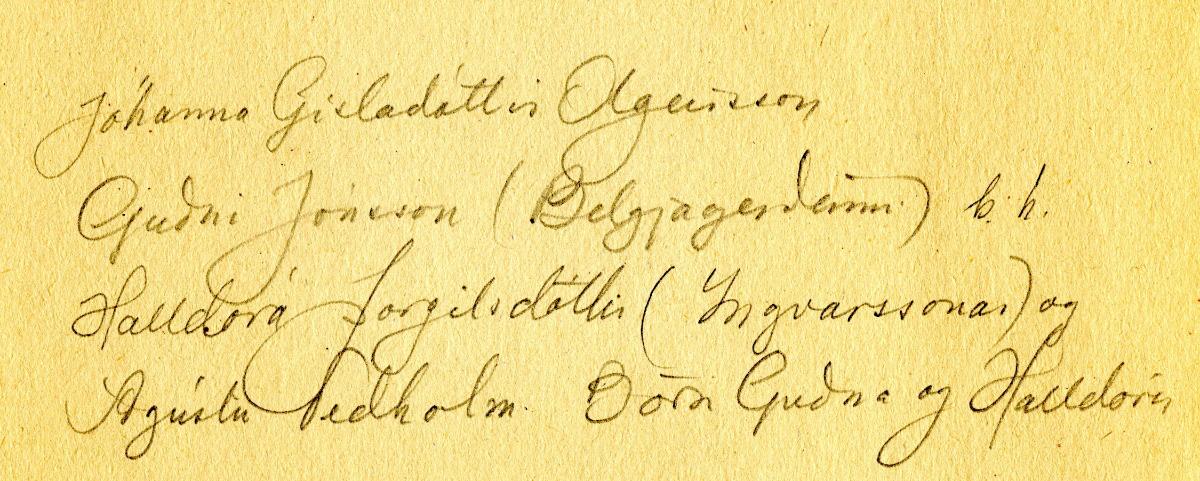 Jóhanna Gisladóttir Olgeirsson
Guðni Jónsson (Belgjagerðinni) b. h.
Halldórá Þorgilsdóttir (Yngvarssonar) og
Agústu Vedholm. Börn Guðna og Halldóru